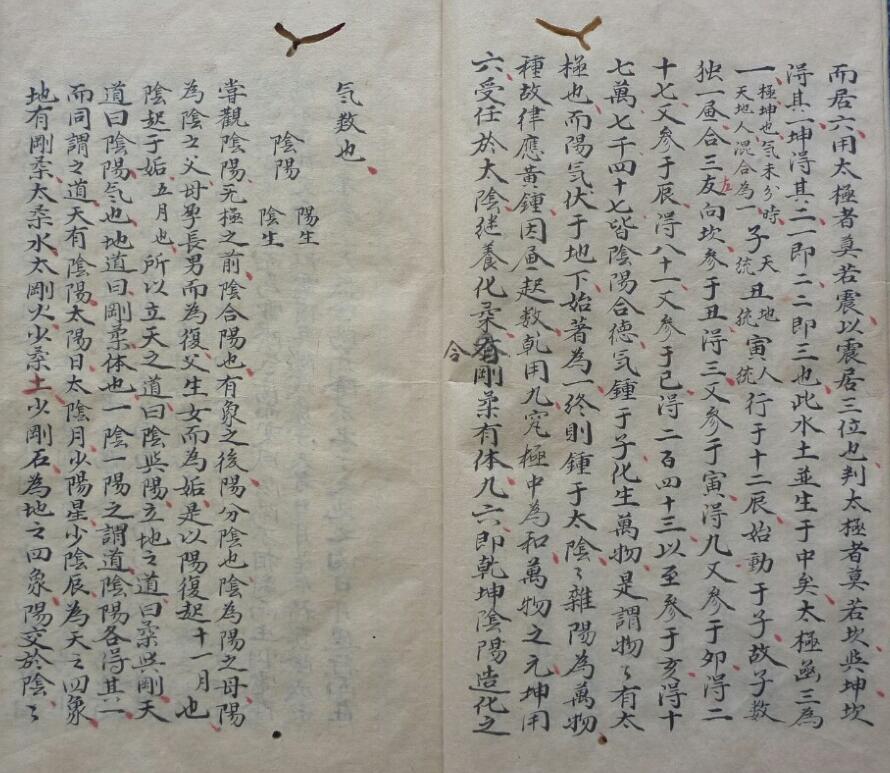 而居六用太極者莫若震以震居三位也判太極者莫若坎与坤坎
得其一坤得其二一即二二即三也此水土並生于中矣太極凾三為
一極坤也气未分時天地人混合為一子天統丑地統寅人統行于十二辰始動于子故子数
独一凾合三友向坎参于丑得三又参于寅得九又参于卯得二
左
十七又参于辰得八十一又参于巳得二百四十三以至参于亥得十
七萬七千四十七皆陰陽合德气鍾于子化生萬物是謂物〻有太
極也而陽气伏于地下始著為一終則鍾于太陰〻雜陽為萬物
種故律應黃鍾因凾一起数乾用九究極中為和萬物之元坤用
六受任於太陰继養化柔有剛柔有体九六即乾坤陰陽造化之
令
气数也
陰陽 陽生 陰生
嘗觀陰陽无極之前陰合陽也有象之後陽分陰也陰為陽之母陽
為陰之父母孕長男而為復父生女而為姤是以陽復起十一月也
陰起于姤五月也所以立天之道曰陰与陽立地之道曰柔与剛天
道曰陰陽气也地道曰剛柔体也一陰一陽之謂道陰陽各得其一
而同謂之道天有陰陽太陽日太陰月少陽星少陰辰為天之四象
地有剛柔太柔水太剛火少柔土少剛石為地之四象陽交於陰〻